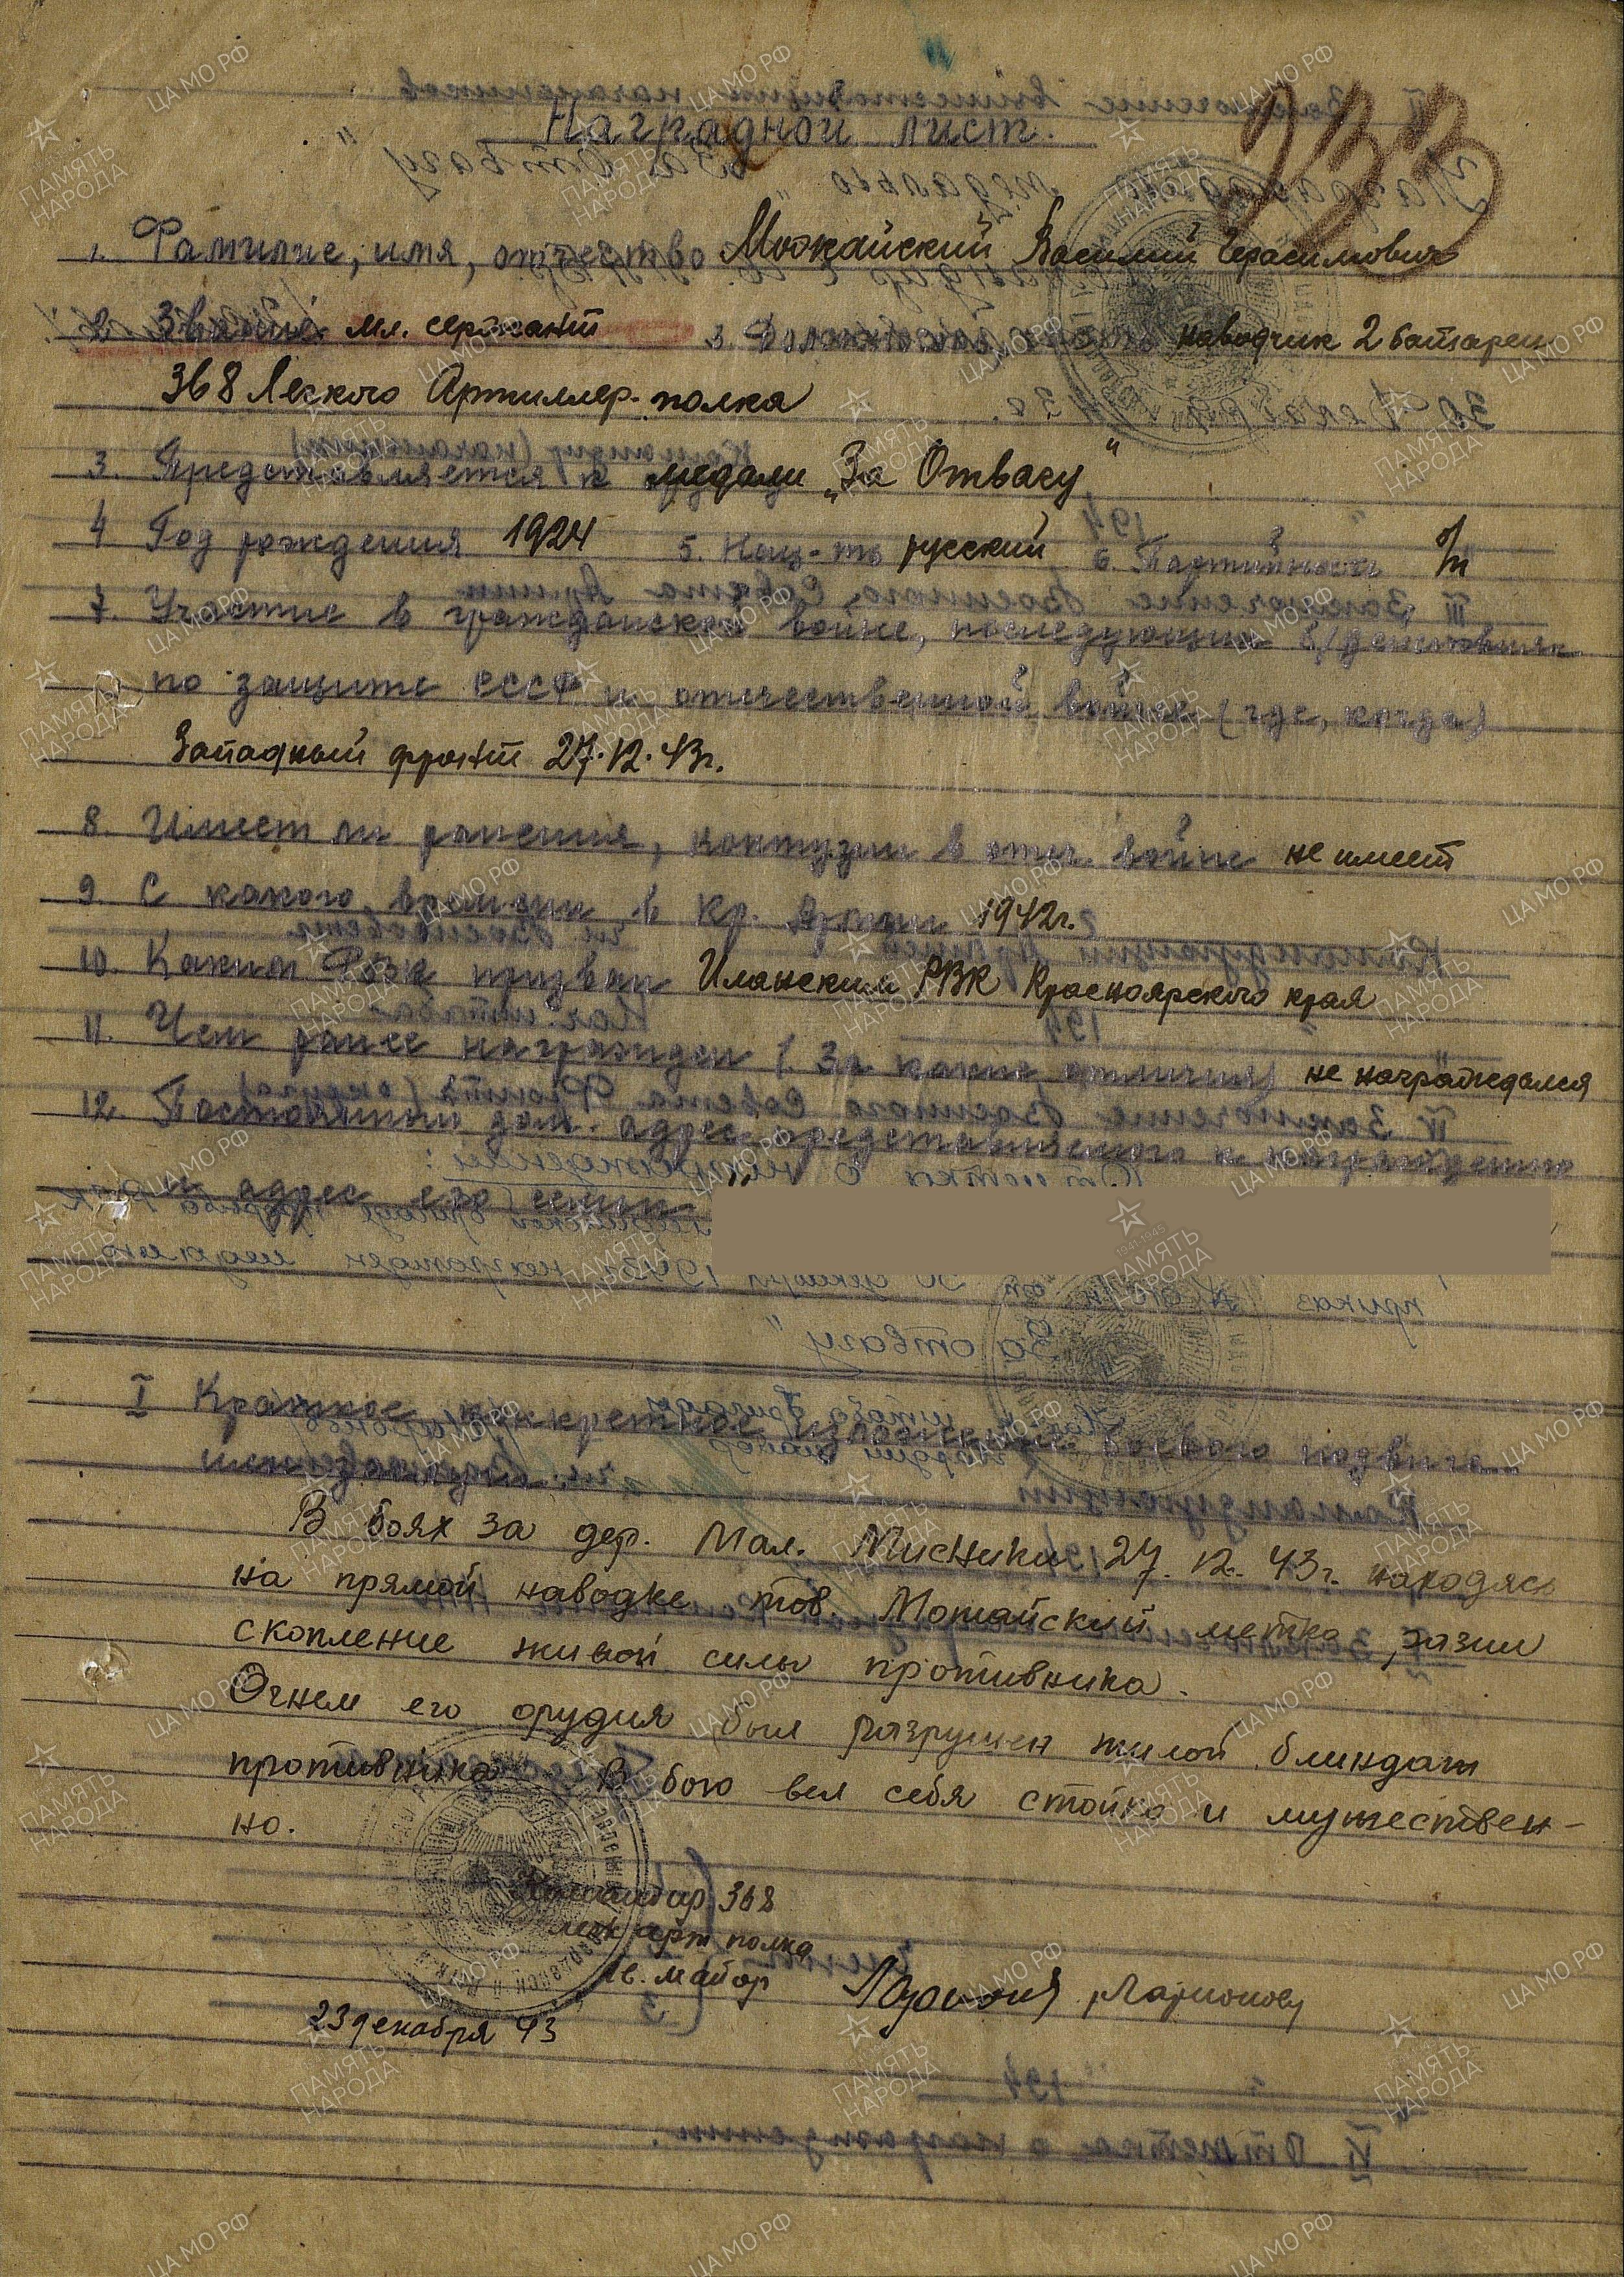 Наградной лист.
233
1. Фамилие, имя, отчество Можайский Василий Герасимович
2. Звание мл. сержант 3. Должность наводчик 2 батареи
368 Легкого Артиллер. полка
3. Представляется к медали „За Отвагу"
4 Год рождения 1924 5. Нац-ть русский 6. Партийность б/п
7. Участие в гражданской войне, последующих б/действиях
по защите СССР и отечественной войне (где, когда)
Западный фронт 27.12.43г.
8. Имеет ли ранения, контузии в отеч. войне не имеет
9. С какого времени в Кр. Армии 1942г.
10. Каким РВК призван Иланским РВК Красноярского края
11. Чем ранее награжден (за какие отличия) не награждался
12. Постоянный дом. адрес представляемого к награждению
и адрес его семьи
I Краткое конкретное изложение боевого подвига
или заслуги
В боях за дер. Мал. Мисники 27.12.43г. находясь
на прямой наводке тов. Можайский метко разил
скопление живой силы противника.
Огнем его орудия был разрушен жилой блиндаж
противника. В бою вел себя стойко и мужествен-
но.
Командир 368
легк арт полка
гв. майор /Ларионов/
23 декабря 43